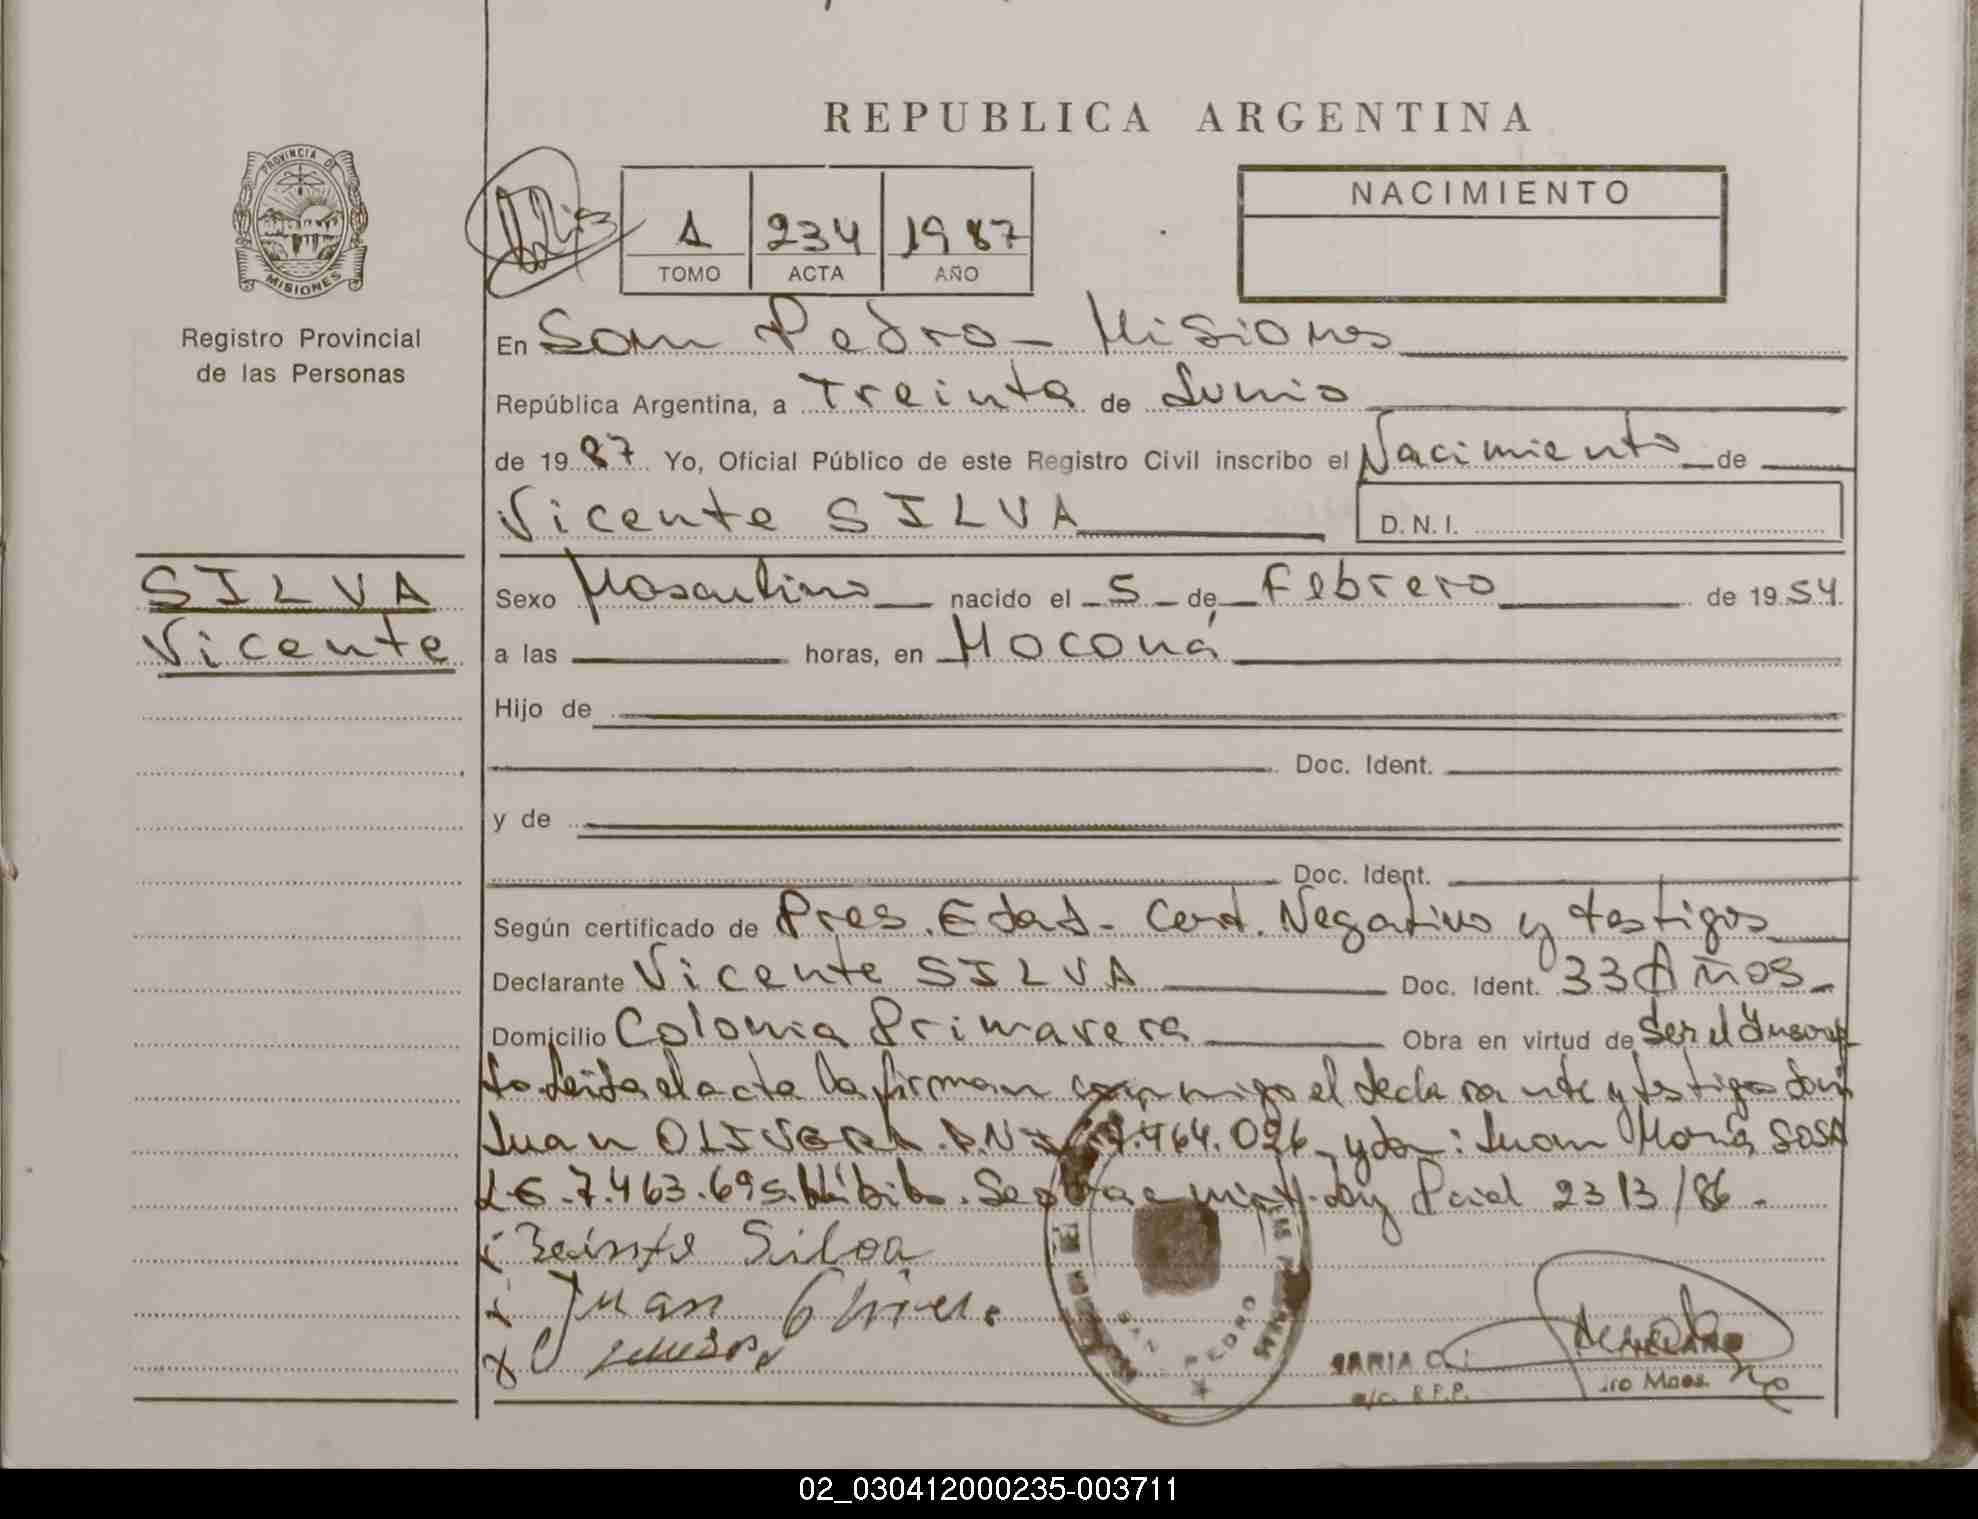 REPUBLICA ARGENTINA
PROVINCIA DE
MISIONES
Registro Provincial
de las Personas
1 234 1987
TOMO ACTA AÑO
NACIMIENTO
En San Pedro - Misiones
República Argentina, a Treinta de Junio
de 1987 Yo, Oficial Público de este Registro Civil inscribo el Nacimiento de
Vicente SILVA D.N.I.
SILVA
Vicente
Sexo Masculino nacido el 5 de Febrero de 1954
a las horas, en Moconá
Hijo de
Doc. Ident.
y de
Doc. Ident.
Según certificado de Pres. Edad - Cert. Negativo y testigos
Declarante Vicente SILVA Doc. Ident. 33 Años
Domicilio Colonia Primavera Obra en virtud de Ser el Inscrip
to Leída el acta la firman conmigo el declarante y testigo don
Juan OLIVERA D.N.I. 464.026 y don: Juan María SOSA
L.E. 7.463.695. Ley Pcial 2313/86.
Juan
SAN PEDRO
MARIA C.
a/c. R.P.P.
02_030412000235-003711